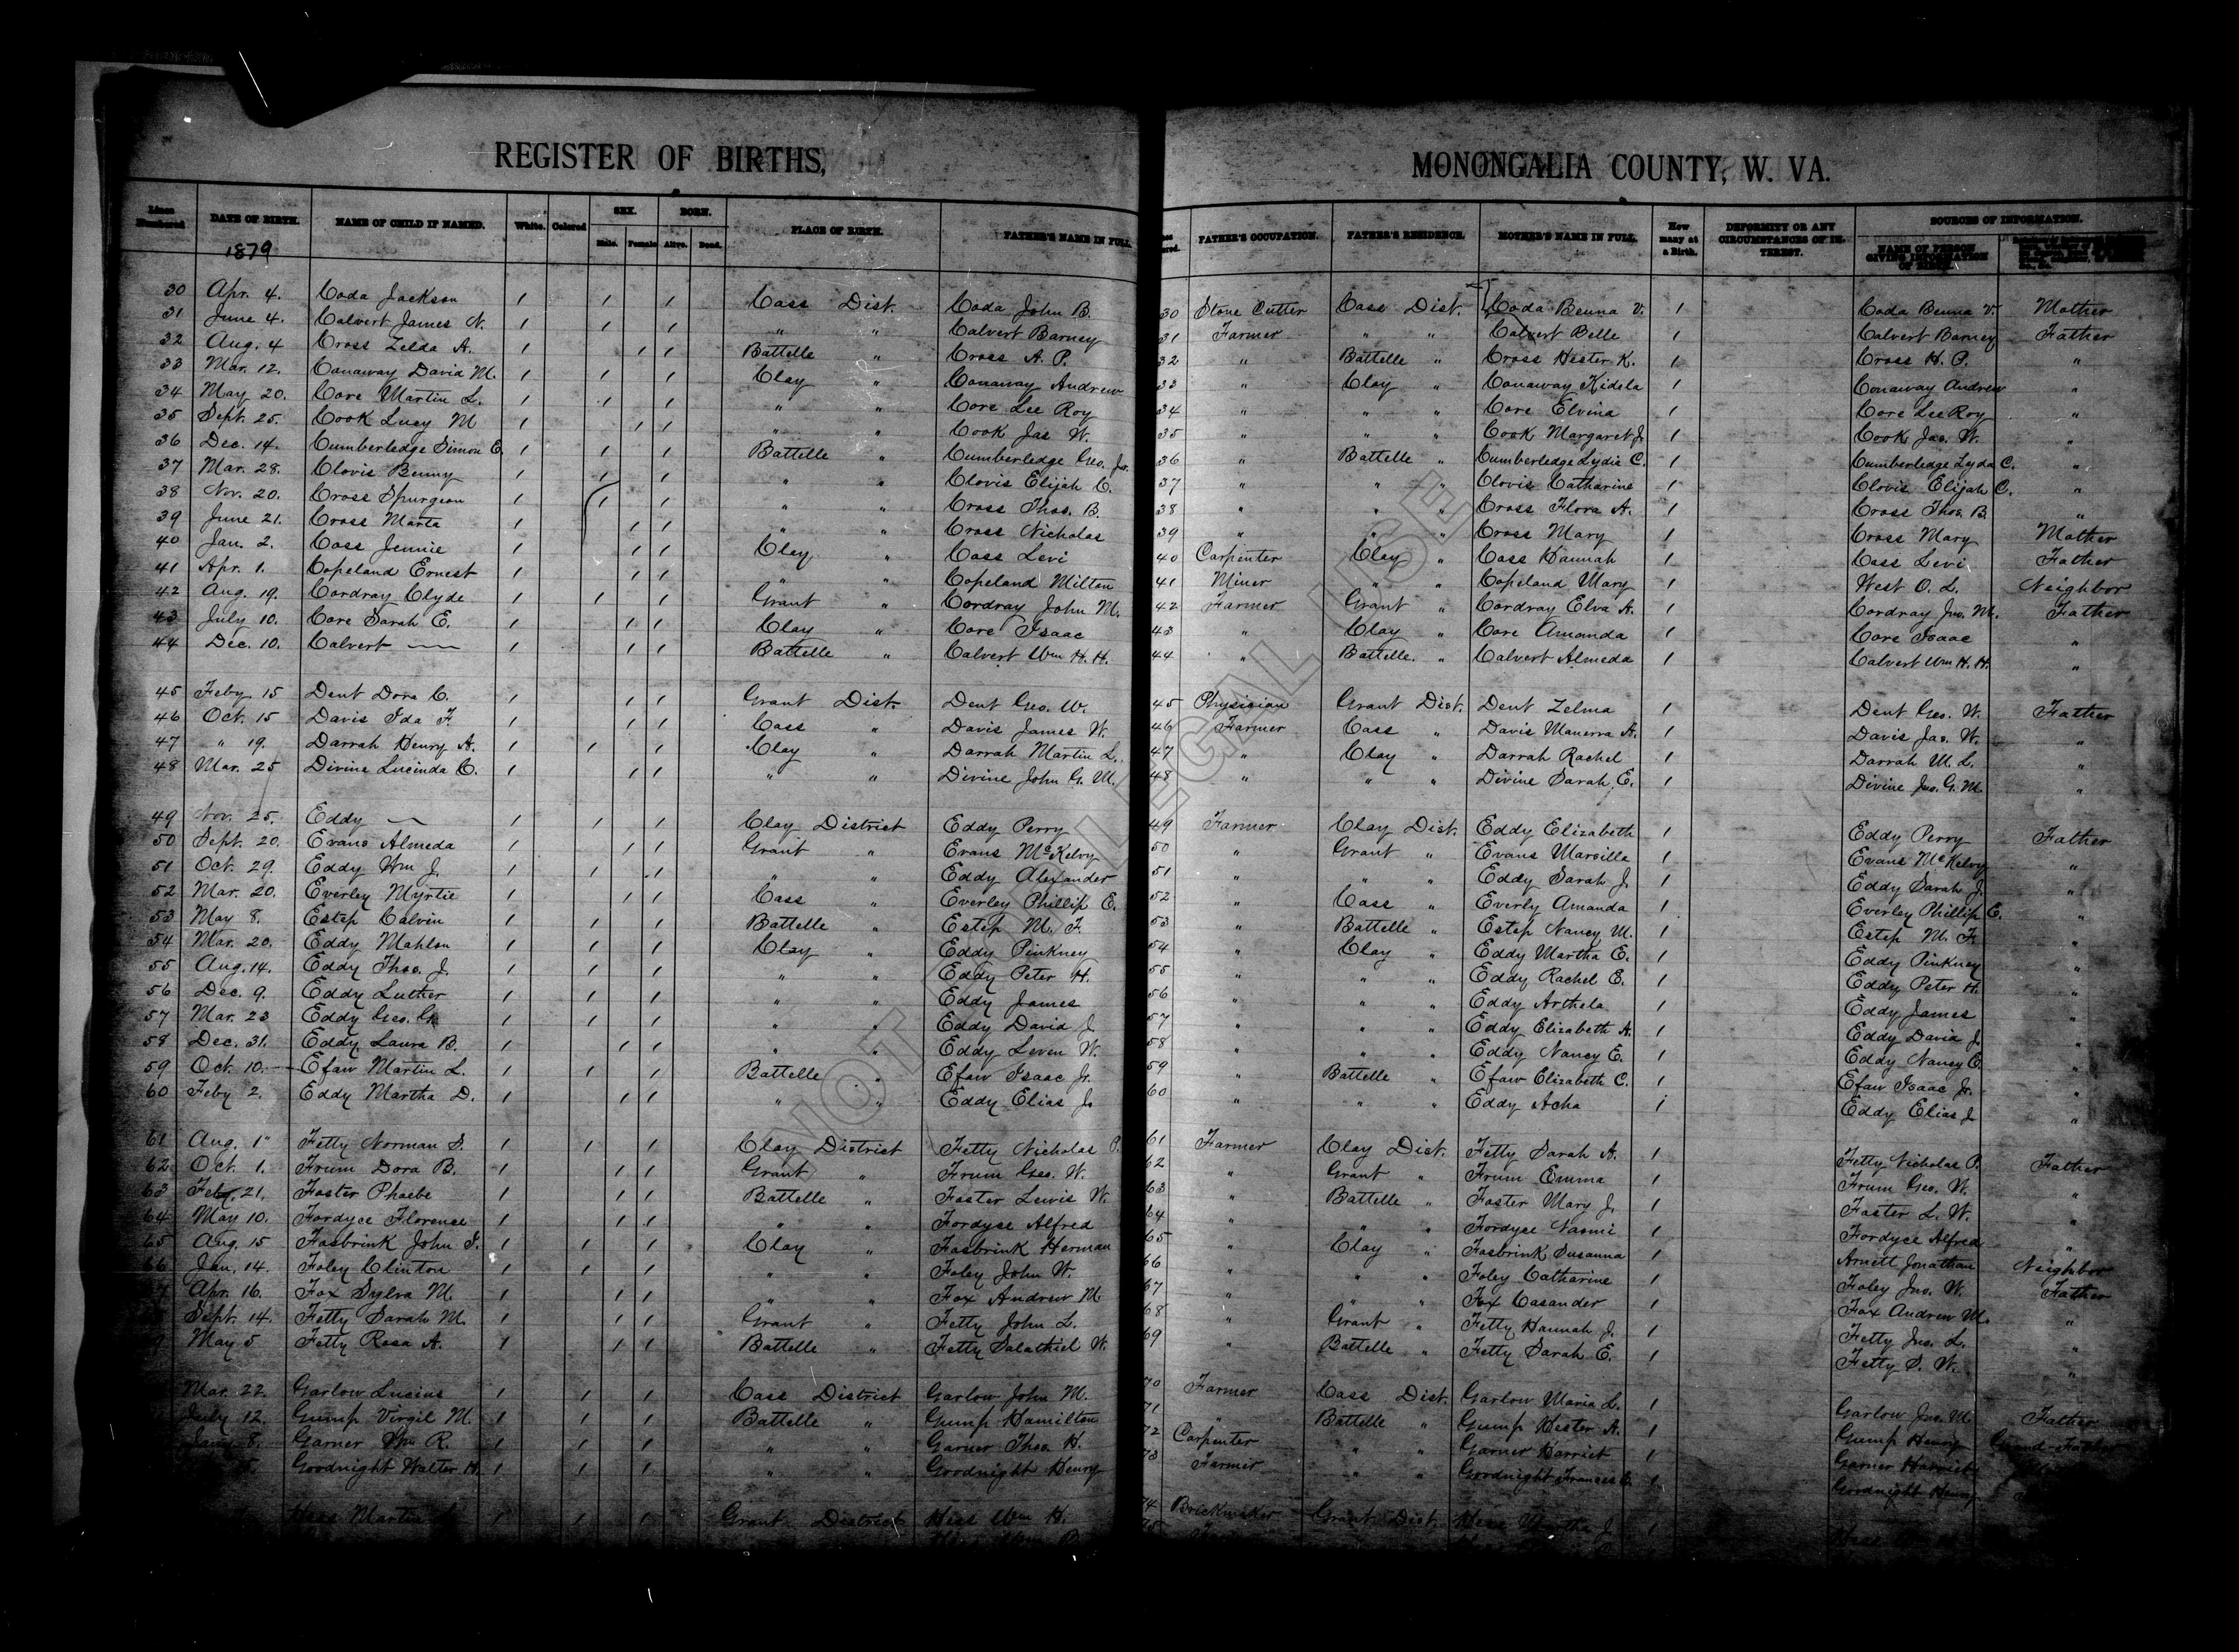 REGISTER OF BIRTHS, MONONGALIA COUNTY, W. VA.
Lines Numbered DATE OF BIRTH. NAME OF CHILD IF NAMED. White. Colored SEX. Male. Female BORN. Alive. Dead. PLACE OF BIRTH. FATHER'S NAME IN FULL. FATHER'S OCCUPATION. FATHER'S RESIDENCE. MOTHER'S NAME IN FULL. How many at a Birth. DEFORMITY OR ANY CIRCUMSTANCES OF INTEREST. SOURCES OF INFORMATION. NAME OF PERSON GIVING INFORMATION OF BIRTH.
1879
30 Apr. 4. Coda Jackson 1 1 1 Cass Dist. Coda John B. 30 Stone Cutter Cass Dist. Coda Benna V. 1 Coda Benna V. Mother
31 June 4. Calvert James N. 1 1 1 " " Calvert Barney 31 Farmer " " Calvert Belle 1 Calvert Barney Father
32 Aug. 4 Cross Zelda A. 1 1 1 Battelle " Cross A. P. 32 " Battelle " Cross Hester K. 1 Cross H. P. "
33 Mar. 12. Conaway David M. 1 1 1 Clay " Conaway Andrew 33 " Clay " Conaway Kidela 1 Conaway Andrew "
34 May 20. Core Martin L. 1 1 1 " " Core Lee Roy 34 " " " Core Elvina 1 Core Lee Roy "
35 Sept. 25. Cook Lucy M 1 1 1 " " Cook Jas W. 35 " " " Cook Margaret J. 1 Cook Jas. W. "
36 Dec. 14. Cumberledge Simon E. 1 1 1 Battelle " Cumberledge Geo. Jr. 36 " Battelle " Cumberledge Lydia C. 1 Cumberledge Lyda C. "
37 Mar. 28. Clovis Benny 1 1 1 " " Clovis Elijah C. 37 " " " Clovis Catharine 1 Clovis Elijah C. "
38 Nov. 20. Cross Spurgeon 1 1 1 " " Cross Thos. B. 38 " " " Cross Flora A. 1 Cross Thos. B. "
39 June 21. Cross Marta 1 1 1 " " Cross Nicholas 39 " " " Cross Mary 1 Cross Mary Mother
40 Jan. 2. Cass Jennie 1 1 1 Clay " Cass Levi 40 Carpenter Clay " Cass Hannah 1 Cass Levi Father
41 Apr. 1. Copeland Ernest 1 1 1 " " Copeland Milton 41 Miner " " Copeland Mary 1 West O. L. Neighbor
42 Aug. 19. Cordray Clyde 1 1 1 Grant " Cordray John M. 42 Farmer Grant " Cordray Elva A. 1 Cordray Jno. M. Father
43 July 10. Core Sarah E. 1 1 1 Clay " Core Isaac 43 " Clay " Core Amanda 1 Core Isaac "
44 Dec. 10. Calvert — 1 1 1 Battelle " Calvert Wm H. H. 44 " Battelle. " Calvert Almeda 1 Calvert Wm H. H. "
45 Feby 15 Dent Dora C. 1 1 1 Grant Dist. Dent Geo. W. 45 Physician Grant Dist. Dent Zelma 1 Dent Geo. W. Father
46 Oct. 15 Davis Ida F. 1 1 1 Cass " Davis James W. 46 Farmer Cass " Davis Manerva A. 1 Davis Jas. W. "
47 " 19. Darrah Henry A. 1 1 1 Clay " Darrah Martin L. 47 " Clay " Darrah Rachel 1 Darrah M. L. "
48 Mar. 25 Divine Lucinda C. 1 1 1 " " Divine John G. M. 48 " " " Divine Sarah E. 1 Divine Jno. G. M. "
49 Nov. 25. Eddy — 1 1 1 Clay District Eddy Perry 49 Farmer Clay Dist. Eddy Elizabeth 1 Eddy Perry Father
50 Sept. 20. Evans Almeda 1 1 1 Grant " Evans McKelvy 50 " Grant " Evans Marsilla 1 Evans McKelvy "
51 Oct. 29. Eddy Wm J. 1 1 1 " " Eddy Alexander 51 " " " Eddy Sarah J. 1 Eddy Sarah J. "
52 Mar. 20. Everley Myrtie 1 1 1 Cass " Everley Phillip E. 52 " Cass " Everly Amanda 1 Everley Phillip E. "
53 May 8. Estep Calvin 1 1 1 Battelle " Estep M. F. 53 " Battelle " Estep Nancy M. 1 Estep M. F. "
54 Mar. 20. Eddy Mahlon 1 1 1 Clay " Eddy Pinkney 54 " Clay " Eddy Martha E. 1 Eddy Pinkney "
55 Aug. 14. Eddy Thos. J. 1 1 1 " " Eddy Peter H. 55 " " " Eddy Rachel E. 1 Eddy Peter H. "
56 Dec. 9. Eddy Luther 1 1 1 " " Eddy James 56 " " " Eddy Arthela 1 Eddy James "
57 Mar. 23 Eddy Geo. G. 1 1 1 " " Eddy David J. 57 " " " Eddy Elizabeth A. 1 Eddy David J. "
58 Dec. 31. Eddy Laura B. 1 1 1 " " Eddy Leven W. 58 " " " Eddy Nancy E. 1 Eddy Nancy E. "
59 Oct. 10. Efaw Martin L. 1 1 1 Battelle " Efaw Isaac Jr. 59 " Battelle " Efaw Elizabeth C. 1 Efaw Isaac Jr. "
60 Feby 2. Eddy Martha D. 1 1 1 " " Eddy Elias J. 60 " " " Eddy Acha 1 Eddy Elias J "
61 Aug. 1" Fetty Norman S. 1 1 1 Clay District Fetty Nicholas P. 61 Farmer Clay Dist. Fetty Sarah A. 1 Fetty Nicholas P. Father
62 Oct. 1. Frum Dora B. 1 1 1 Grant " Frum Geo. W. 62 " Grant " Frum Emma 1 Frum Geo. W. "
63 Feby. 21. Foster Phoebe 1 1 1 Battelle " Foster Lewis W. 63 " Battelle " Foster Mary J. 1 Foster L. W. "
64 May 10. Fordyce Florence 1 1 1 " " Fordyce Alfred 64 " " " Fordyce Naomi 1 Fordyce Alfred "
65 Aug. 15 Fosbrink John S. 1 1 1 Clay " Fosbrink Herman 65 " Clay " Fosbrink Susanna 1 Arnett Jonathan Neighbor
66 Jan. 14. Foley Clinton 1 1 1 " " Foley John W. 66 " " " Foley Catharine 1 Foley Jno. W. Father
67 Apr. 16. Fox Sylva M. 1 1 1 " " Fox Andrew M. 67 " " " Fox Casander 1 Fox Andrew M. "
Sept. 14. Fetty Sarah M. 1 1 1 Grant " Fetty John L. 68 " Grant " Fetty Hannah J. 1 Fetty Jno. L. "
9 May 5 Fetty Rosa A. 1 1 1 Battelle " Fetty Salathiel W. 69 " Battelle " Fetty Sarah E. 1 Fetty S. W. "
Mar. 22. Garlow Lucius 1 1 1 Cass District Garlow John M. 70 Farmer Cass Dist. Garlow Maria L. 1 Garlow Jno. M. Father
July 12. Gump Virgil M. 1 1 1 Battelle " Gump Hamilton 71 " Battelle " Gump Hester A. 1 Gump Henry Grand-Father
Jany 8. Garner Wm R. 1 1 1 " " Garner Thos. H. 72 Carpenter " " Garner Harriet 1 Garner Harriet
Goodnight Walter H. 1 1 1 " " Goodnight Henry 73 Farmer " " Goodnight Frances E. 1 Goodnight Henry
Hess Martin 1 1 1 Grant District Hess Wm H. 74 Brickmaker Grant Dist. Hess Martha J. 1
75
NOT FOR LEGAL USE